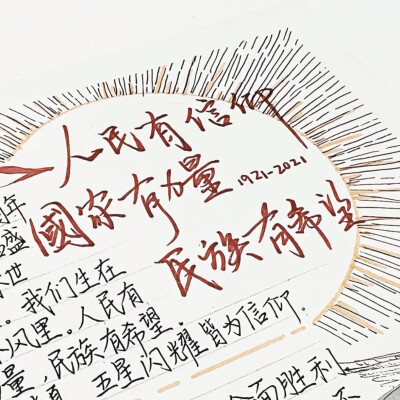 人民有信仰
國家有力量
1921-2021
民族有希望
年
盛
世
我们生在
风里。人民有
量,民族有希望,
五星闪耀皆为信仰.
全面胜利